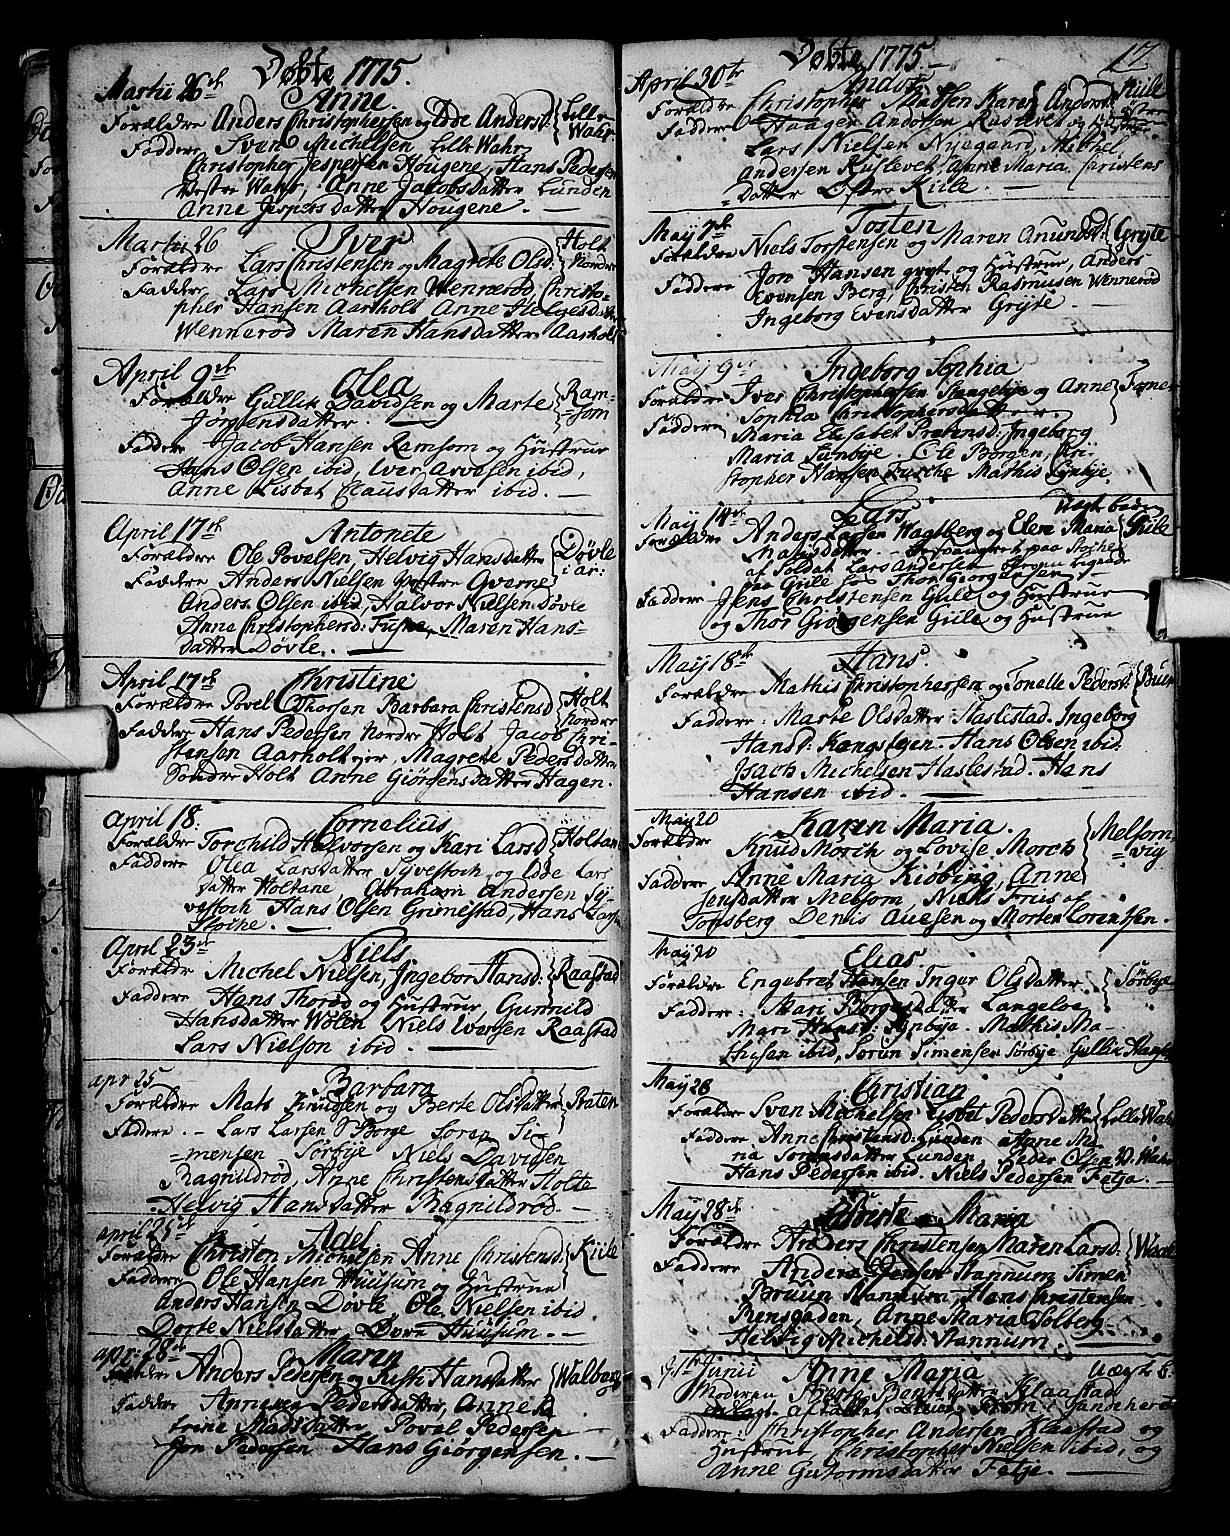 Døbte 1775.
Martii 26de
Anne.
Forældre Anders Christophersen og Idde Andersd: Lille Wahr
Faddere Sven Michelsen Lille Wahr
Christopher Jespersen Hougene, Hans Pedersen
Vestre Wahr, Anne Jacobsdatter Lunden
Anne Jespersdatter Hougene. —
Martii 26
Iver
Forældre Lars Christensen og Magrete Olsd: Holt Nordre
Faddere Lars Michelsen Wennerød Christo-
pher Hansen Aarholt Anne Helgesdatter
Wennerød Maren Hansdatter Aarholt
April 9de
Olea
Forældre Gullik Davidsen og Marte Ram=som
Jørgensdatter. —
Faddere Jacob Hansen Ramsom og Hustrue
Hans Olsen ibid, Iver Arvesen ibid,
Anne Lisbet Clausdatter ibid. —
April 17de
Antonete
Forældre Ole Povelsen, Helvig Hansdatter Døvle
Faddere Anders Nielsen Vestre Qverne
Anders Olsen ibid, Halvor Nielsen Døvle
Anne Christophersd: Fusne, Maren Hans-
datter Døvle. —
April 17de
Christine
Forældre Povel Thorsen Barbara Christensd Holt Nordre
Faddere Hans Pedersen Nordre Holt Jacob Chri-
stensen Aarholt, Magrete Pedersdatter
Søndre Holt Anne Giørgensdatter Hagen.
April 18.
Cornelius
Forældre Torchild Halvorsen og Kari Larsd Holtan
Faddere Olea Larsdatter Syvestoch og Idde Lars
datter Holtane, Abraham Andersen Sy-
vestoch Hans Olsen Grimestad, Hans Larsen
Stoche. —
April 23de
Niels
Forældr Michel Nielsen, Ingebor Hansd: Raastad
Faddere Hans Thorød og Hustrue, Gunnild
Hansdatter Wølen Niels Iversen Raastad
Lars Nielson ibid. —
apr 25
Barbara
Forældre Mats Knudsen og Berte Olsdatter Braten
Faddere .- Lars Larsen Borge Søren Si-
=mensen Sørbye Niels Davidsen
Ragnildrød, Anne Christensdatter Holte
Helvig Hansdatter Ragnildrød.
april 25de
Adel
Forældre Christen Michelsen Anne Christensd: Kiile
Faddere Ole Hansen Huusum og Hustrue
Anders Hansen Døvle, Ole Nielsen ibid
Dorte Nielsdatter Øvre Huusum. —
apr: 28de
Maren
Anders Pedersen og Hansdatter Walberg
Faddere Pedersdatter, Anne
trine Madsdatter Povel Pedersen
Jon Pedersen Hans Giørgensen. —
Døbte 1775.
17.
April 30te
Anders
Forældre Christopher Madsen Karen Andersd: Kiile
Faddere Haagen Andersen Ruslevet og Hustrue
Lars Nielsen Nyegaard, Michel
Andersen Ruslevet, Anne Maria Christens
=Datter Østre Kiile. —
May 7de
Tosten
Forældre Niels Torstensen og Maren Anundsd: Gryte
Faddere Jon Hansen gryt og Hustrue, Anders
Evensen Berg, Christen Rasmusen Wennerød
Ingeborg Evensdatter Gryte.
May 9de
Ingeborg Sophia
Forældre Iver Christophersen Stangebye og Anne
Sophia Christophersdatter
Faddere Maria Elisabet Prebensd, Ingeborg
Maria Sunbye. Ole Borgen, Cri-
stopher Hansen Mathis Synbye.
May 14de
Lars
Uægte barn
Forældre Anders Larsen Waglberg og Elen Maria Giile
Matisdatter — Besvangret paa Stoche
af Soldat Lars Andersen
paa Giile hos Thor Giørgensen
Faddere Jens Christensen Giile og Hustrue
og Thor Giørgensen Giile og Hustrue
May 18de
Hans.
Forældre Mathis Christophersen og Tonelle Pedersd:
Faddere: Marte Olsdatter Haslestad. Ingeborg
Hansd: Kangsteen. Hans Olsen ibid.
Isach Michelsen Haslestad. Hans
Hansen ibid. —
May 20
Karen Maria.
Forældre Knud Morch og Lovise Morch Melsom=vig
Faddere Anne Maria Kiøbing, Anne
Jensdatter Melsom, Niels Friis af
Tonsberg Denis Auesen og Morten Lorentsen.
May 20
Elias.
Forældre Engebret Hansen Inger Olsdatter Sørbye
Faddere: Mari Borgesdatter Langeloe
Mari Hansd: Synbye. Mathis Ma-
thisen ibid, Sørun Simensen Sørbye Gullik Hansen
May 28
Christian
Forældre Sven Michelsen Lisbet Pedersdatter Lille Wahr
Faddere Anne Christensd: Lunden Anne Ma-
ria Sørensdatter Lunden Peder Olsen W. Wahr
Hans Pedersen ibid. Niels Pedersen Fetja.
May 28de
Maria
Forældre Anders Christensen Maren Larsd:
Faddere Anders Jensen Stannum Simen
Bruun Stannum, Hans Christensen
Rensgaden, Anne Maria Solberg
Helvig Michelsd: Stannum.
Junii
Anne Maria
Uægte b.
Moderen Berte Bentsdatter Klaastad
Faddere: Christopher Andersen Klaastad og
Hustrue Christopher Nielsen ibid, og
Anne Gutormsdatter Fetje. —